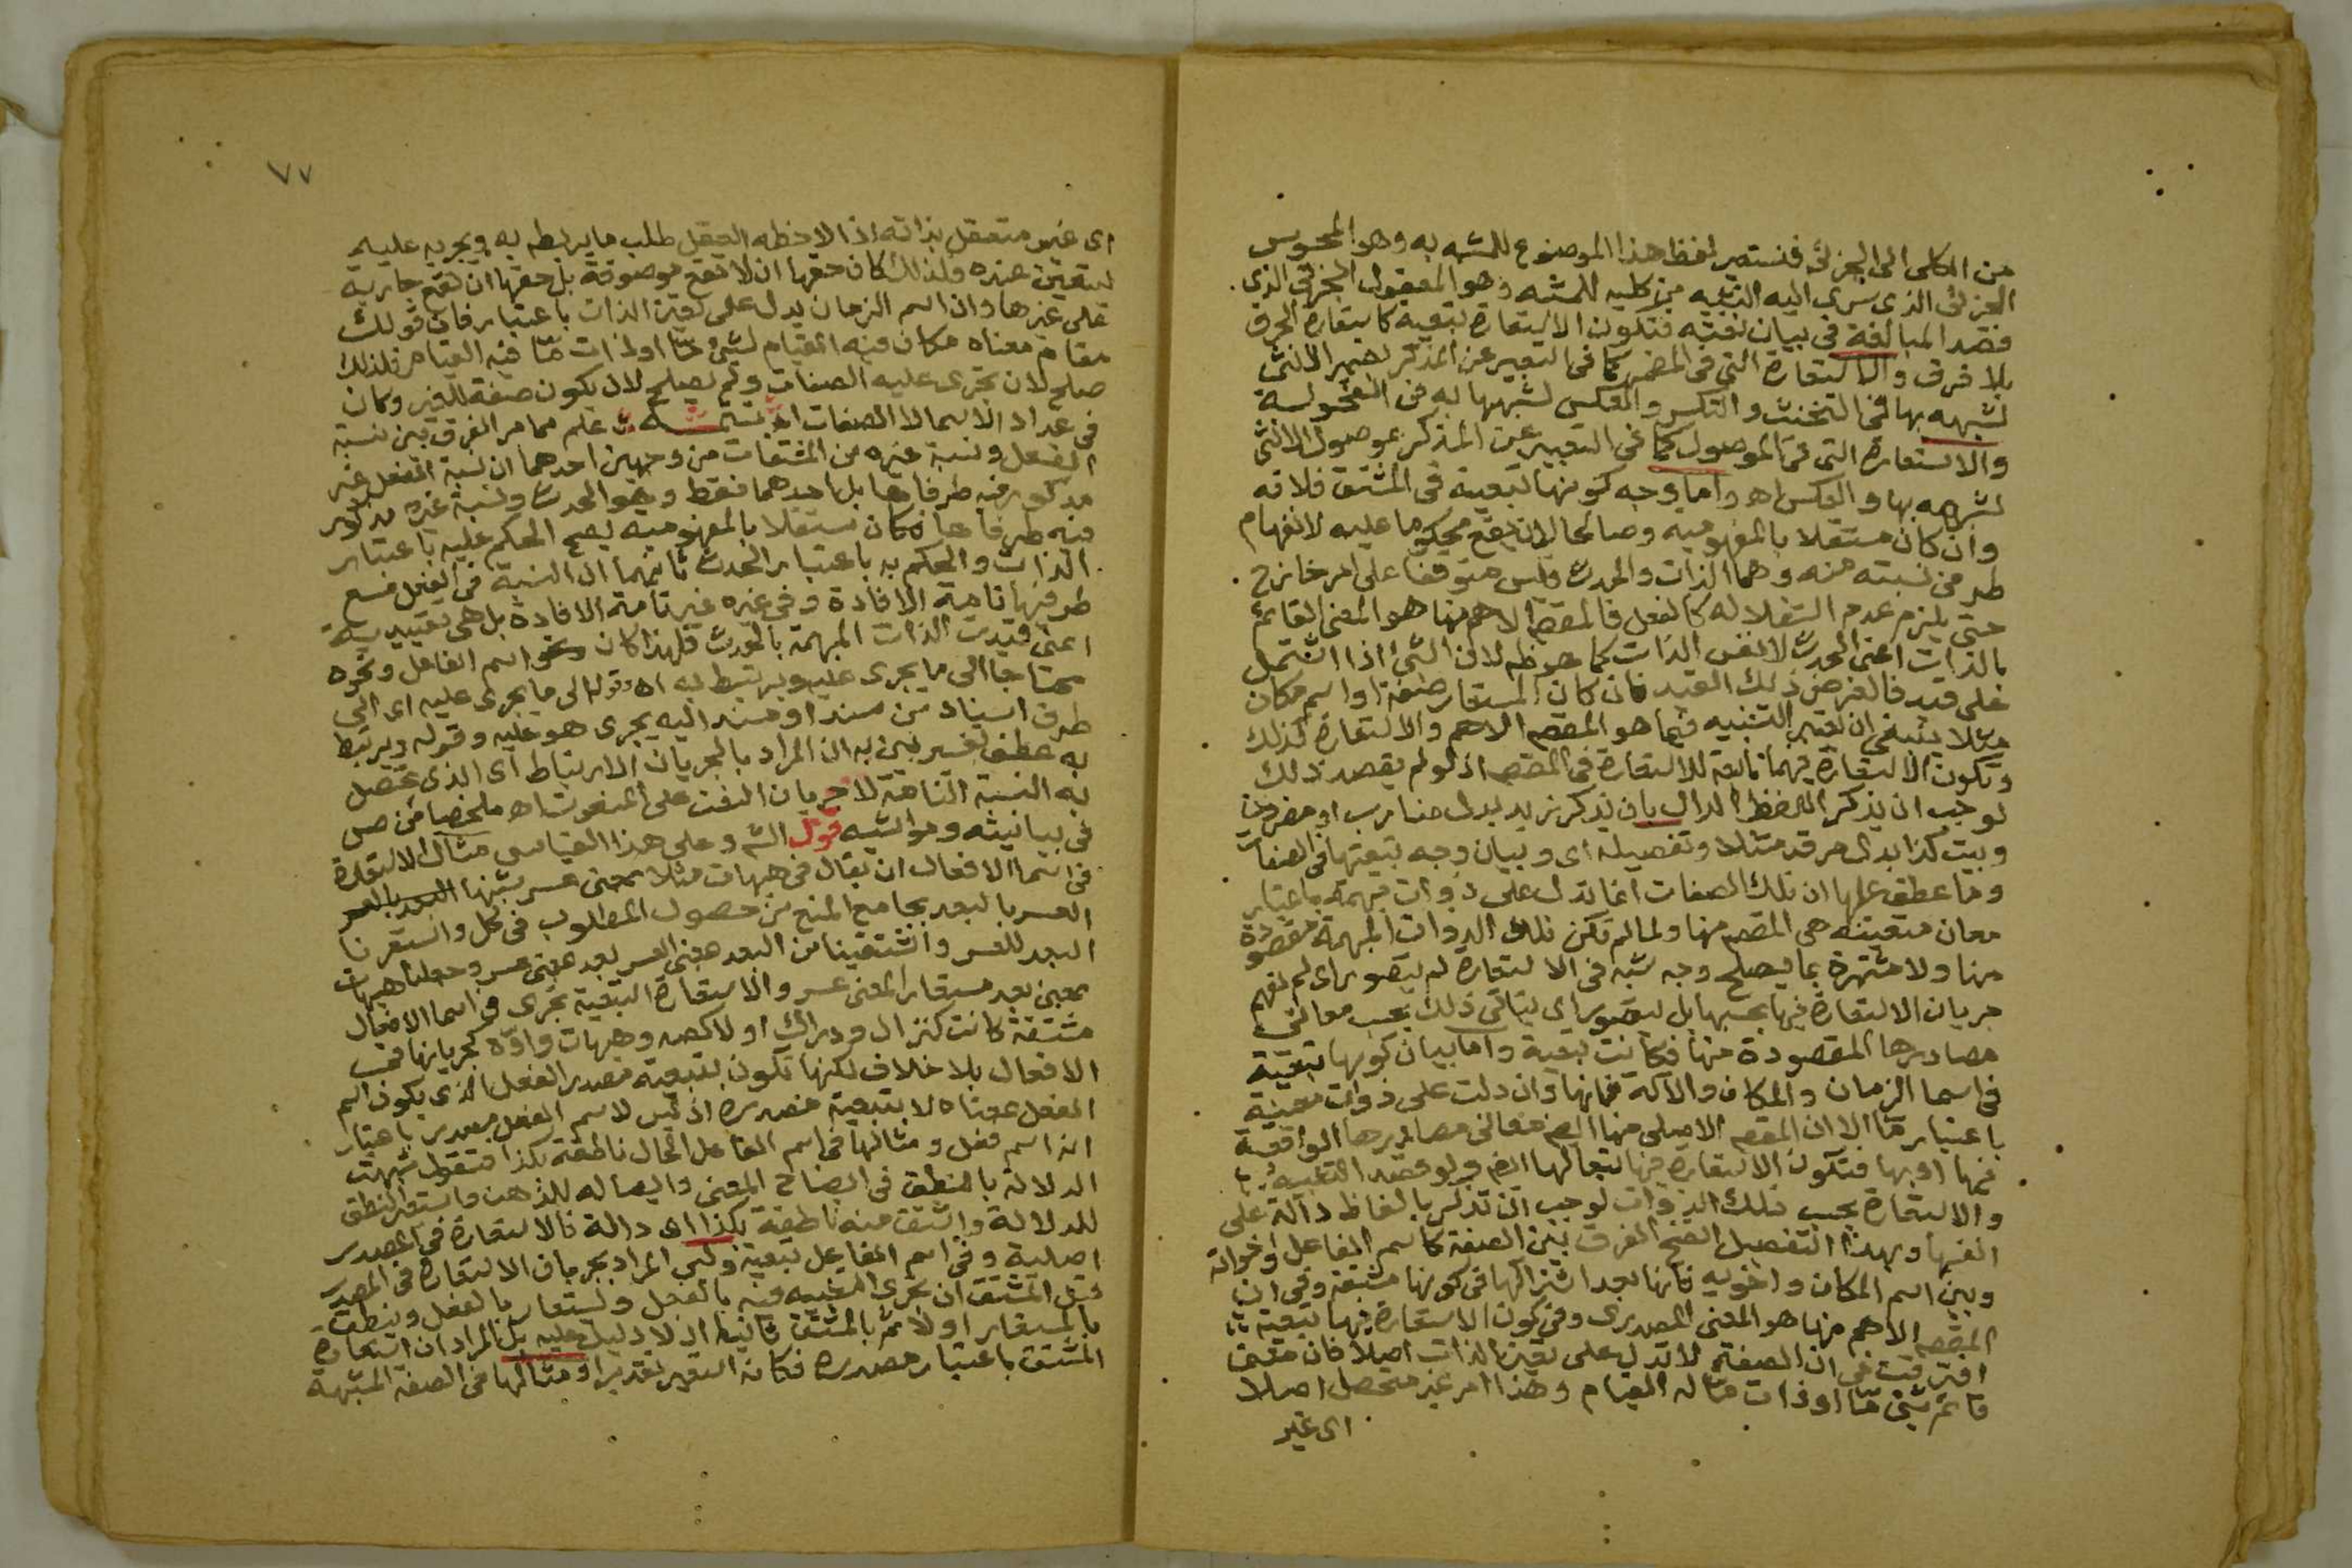 من الكلى الى الجزئى فنستعير لفظ هذا الموضوع للمشبه به وهو المحسوس
الجزئى الذى سرى اليه التشبيه من كلية للمشبه وهو المعقول الجزئى الذى
قصد المبالغة فى بيان فتكون الاستعارة تبعية كاستعارة الحرف
بلا فرق والاستعارة التى فى المضمر كما فى التعبير عن المذكر بضمير الانثى
لشبهه بها فى التخنث والعكس والعكس لشبهها به فى الفحولية
والاستعارة التى فى الموصول كما فى التعبير عن المذكر بموصول الانثى
لشبهه بها والعكس اه واما وجه كونها تبعية فى المشتق فلانه
وان كان مستقلا بالمفهومية وصالحا لان يقع محكوما عليه لانفهام
طرفى نسبته منه وهما الذات والحدث وليس متوقفا على امر خارج
حتى يلزم عدم استقلاله كالفعل فالمقصم الاهم منها هو المعنى القائم
بالذات اعنى الحدث لا نفس الذات كما هو ظه لان الشئ اذا اشتمل
على قيد فالغرض ذلك القيد فان كان المستعار صفة او اسم مكان
مثلا ينبغى ان يعتبر التشبيه فيما هو المقصم الاهم والاستعارة كذلك
وتكون الاستعارة فيهما تابعة للاستعارة فى المقصم اذ لو لم يقصد ذلك
لوجب ان يذكر اللفظ الدال بان يذكر زيد بدل ضارب او مضروب
وبيت كذا بدل مرقد مثلا وتفصيله اى وبيان وجه تبعيتها فى الصفات
وما عطف عليها ان تلك الصفات انما تدل على ذوات مبهمة باعتبار
معان متعينة هى المقصم منها ولما لم تكن تلك الذوات المبهمة مقصودة
منها ولا مشتهرة بما يصلح وجه شبه فى الاستعارة لم يتصور اى لم يفهم
جريان الاستعارة فيها بحسبها بل يتصور اى يتأتى ذلك بحسب معانى
مصادرها المقصودة منها فكانت تبعية واما بيان كونها تبعية
فى اسما الزمان والمكان والالة فانها وان دلت على ذوات معينة
باعتبار ما الا ان المقصم الاصلى منها ايضم معانى مصادرها الواقعة
فيها او بها فتكون الاستعارة فيها تبعا لها ايضم ولو قصد التشبيه
والاستعارة بحسب تلك الذوات لوجب ان تذكر بالفاظ دالة على
انفسها وبهذا التفصيل اتضح الفرق بين الصفة كاسم الفاعل واخواته
وبين اسم المكان واخويه فانها بعد اشتراكها فى كونها مشتقة وفى ان
المقصم الاهم منها هو المعنى المصدرى وفى كون الاستعارة فيها تبعية
افترقت فى ان الصفة لا تدل على تعين الذات اصلا فان معنى
قائم شئ ما او ذات ما له القيام وهذا امر غير متحصل اصلا
اى غير
٧٧
اى غير متعقل بذاته اذا لاحظه العقل طلب ما يربطه به ويجريه عليه
ليتعين عنده ولذلك كان حقها ان لا تقع موصوفة بل حقها ان تقع جارية
على غيرها وان اسم الزمان يدل على تعين الذات باعتبار فان قولك
مقام معناه مكان فيه القيام لشئ ما او ذات ما فيه القيام فلذلك
صلح لان تجرى عليه الصفات ولم يصلح لان يكون صفة للغير وكان
فى عداد الاسما لا الصفات اه علم مما مر الفرق بين نسبة
الفعل ونسبة غيره من المشتقات من وجهين احدهما ان نسبة الفعل غير
مذكور فيه طرفاها بل احدهما فقط وهو الحدث ونسبة غيره مذكور
فيه طرفاها فكان مستقلا بالمفهومية يصح الحكم عليه باعتبار
الذات والحكم به باعتبار الحدث ثانيهما ان النسبة فى الفعل مع
طرفيها تامة الافادة وفى غيره غير تامة الافادة بل هى تقييدية
اعنى قيدت الذات المبهمة بالحدث فلهذا كان نحو اسم الفاعل ونحوه
محتاجا الى ما يجرى عليه ويرتبط به اه وقوله الى ما يجرى عليه اى الى
طرف اسناد من مسند او مسند اليه يجرى هو عليه وقوله ويرتبط
به عطف تفسير بين به ان المراد بالجريان الارتباط اى الذى تحصل
به النسبة التامة لا جريان النعت على المنعوت اه ملخصا من ص
فى بيانيته وحواشيه قول الشم وعلى هذا القياس مثال الاستعارة
فى اسما الافعال ان يقال فى هيهات مثلا بمعنى عسر شبهنا البعد بالعسر
العسر بالبعد بجامع المنع من حصول المطلوب فى كل واستعرنا
البعد للعسر واشتقينا من البعد بمعنى العسر بعد بمعنى عسر وجعلنا هيهات
بمعنى بعد مستعارا لمعنى عسر والاستعارة التبعية تجرى فى اسما الافعال
مشتقة كانت كنزال ودراك او لا كصه وهيهات واوه لجريانها فى
الافعال بلا خلاف لكنها تكون بتبعية مصدر الفعل الذى يكون اسم
الفعل بمعناه لا بتبعية مصدره اذ ليس لاسم الفعل مصدر باعتبار
انه اسم فعل ومثالها فى اسم الفاعل الحال ناطقة بكذا فنقول شبهت
الدلالة بالنطق فى ايضاح المعنى وايصاله للذهن واستعير النطق
للدلالة واشتق منه ناطقة بكذا اى دالة فالاستعارة فى المصدر
اصلية وفى اسم الفاعل تبعية وليس المراد بجريان الاستعارة فى المصدر
قبل المشتق ان يجرى التشبيه فيه بالفعل ويستعار بالفعل وينطق
بالمستعار اولا ثم بالمشتق ثانيا اذ لا دليل عليه بل المراد ان استعارة
المشتق باعتبار مصدره فكانه استعير تقديرا ومثالها فى الصفة المشبهة